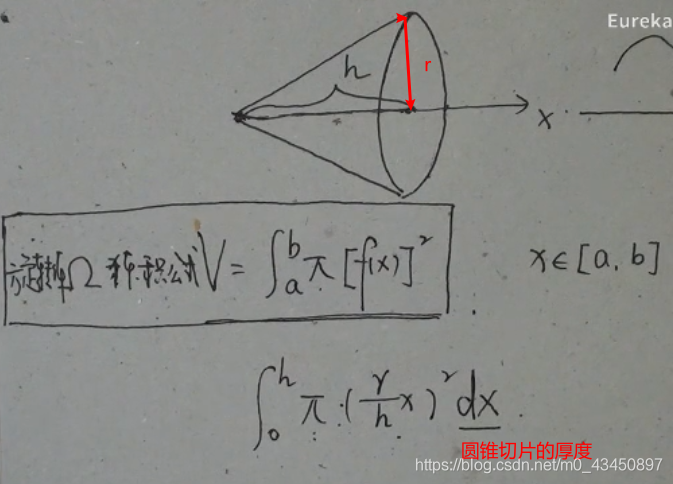 Eureka
h
r
x
旋转体Ω体积公式V = ∫_a^b π [f(x)]²
x∈[a, b]
∫_0^h π · (r/h x)² dx
圆锥切片的厚度
https://blog.csdn.net/m0_43450897